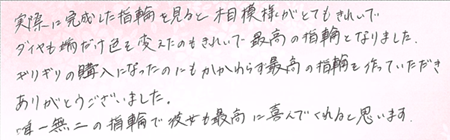 実際に完成した指輪を見ると相模様がとてもきれいで
ダイヤも端だけ色を変えたのもきれいで最高の指輪となりました。
ギリギリの購入になったのにもかかわらず最高の指輪を作っていただき
ありがとうございました。
唯一無二の指輪で彼女も最高に喜んでくれると思います。